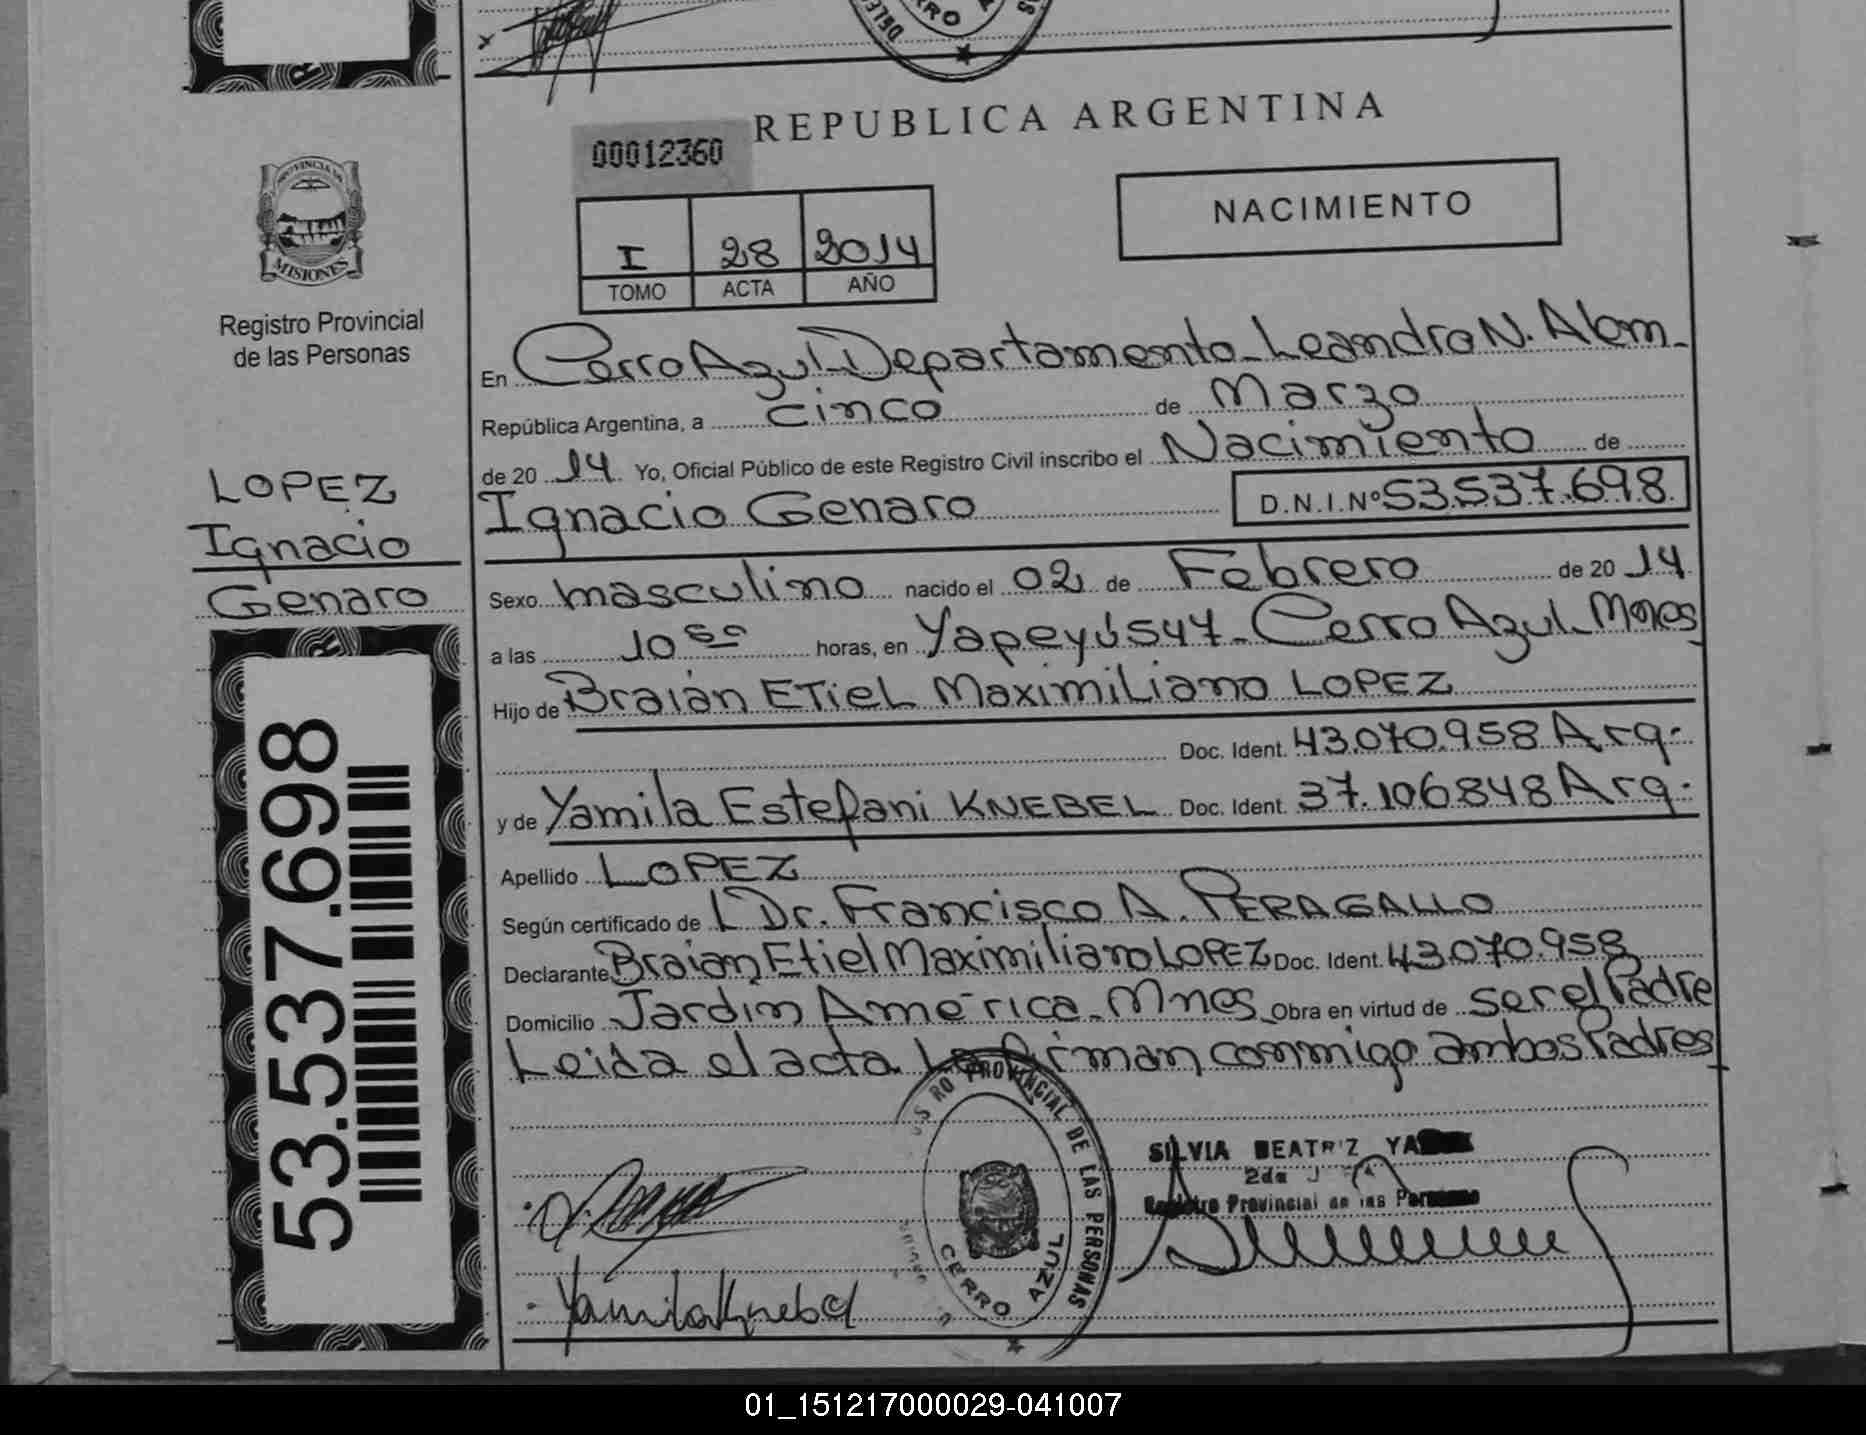 CERRO A
REPUBLICA ARGENTINA
00012360
NACIMIENTO
I 28 2014
TOMO ACTA AÑO
PROVINCIA DE
MISIONES
Registro Provincial
de las Personas
LOPEZ
Ignacio
Genaro
53.537.698
En Cerro Azul-Departamento-Leandro N. Alem-
República Argentina, a cinco de Marzo
de 20 14 Yo, Oficial Público de este Registro Civil inscribo el Nacimiento de
Ignacio Genaro D.N.I.Nº 53.537.698
Sexo masculino nacido el 02 de Febrero de 20 14
a las 10 horas, en Yapeyú 547-Cerro Azul-Mnes
Hijo de Braian ETieL MaximiLiano LOPEZ
Doc. Ident. 43.070.958 Arg.
y de Yamila Estefani KNEBEL Doc. Ident. 37.106848 Arg.
Apellido LOPEZ
Según certificado de Dr. Francisco A. PERAGALLO
Declarante Braian Etiel Maximiliano LOPEZ Doc. Ident. 43.070.958
Domicilio Jardín América-Mnes Obra en virtud de ser el Padre
Leida el acta La firman conmigo ambos Padres
RO PROVINCIAL DE LAS PERSONAS
CERRO AZUL
SILVIA BEATRIZ
2da
Registro Provincial de las Personas
Yamila Knebel
01_151217000029-041007